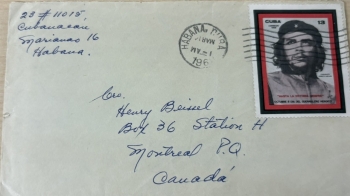 23 # 11015
Cubanacan
Marianao 16
Habana.
HABANA, CUBA
196
CUBA
13
Cro.
Henry Beissel
Box 36 Station H
Montreal P.Q.
Canadá